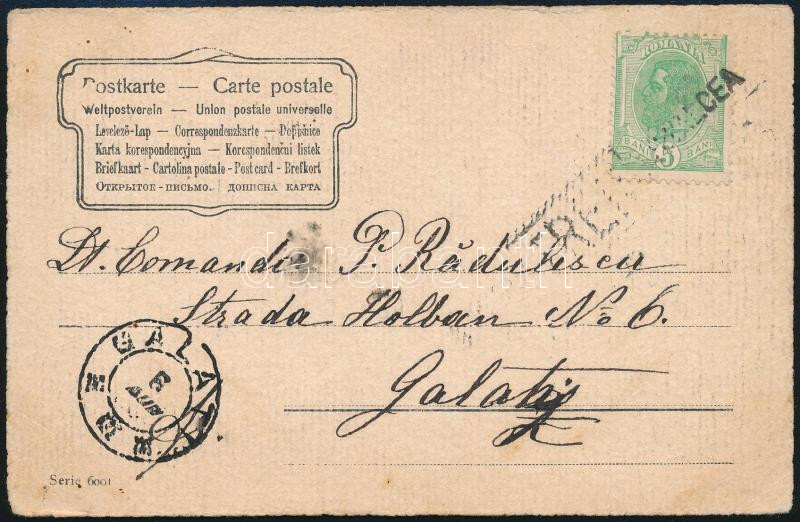 Postkarte — Carte postale
Weltpostverein — Union postale universelle
Levelező-Lap — Correspondenzkarte — Dopisnice
Karta korespondencyjna — Korespondenčni listek
Briefkaart - Cartolina postale - Post card - Brefkort
Открытое - письмо. Дописна карта
ROMANIA
BANI 5 BANI
Dl. Comandir P. Rădulescu
Strada Holban No 6.
Galatz
GALATI
5
Serie 6001
darabanth